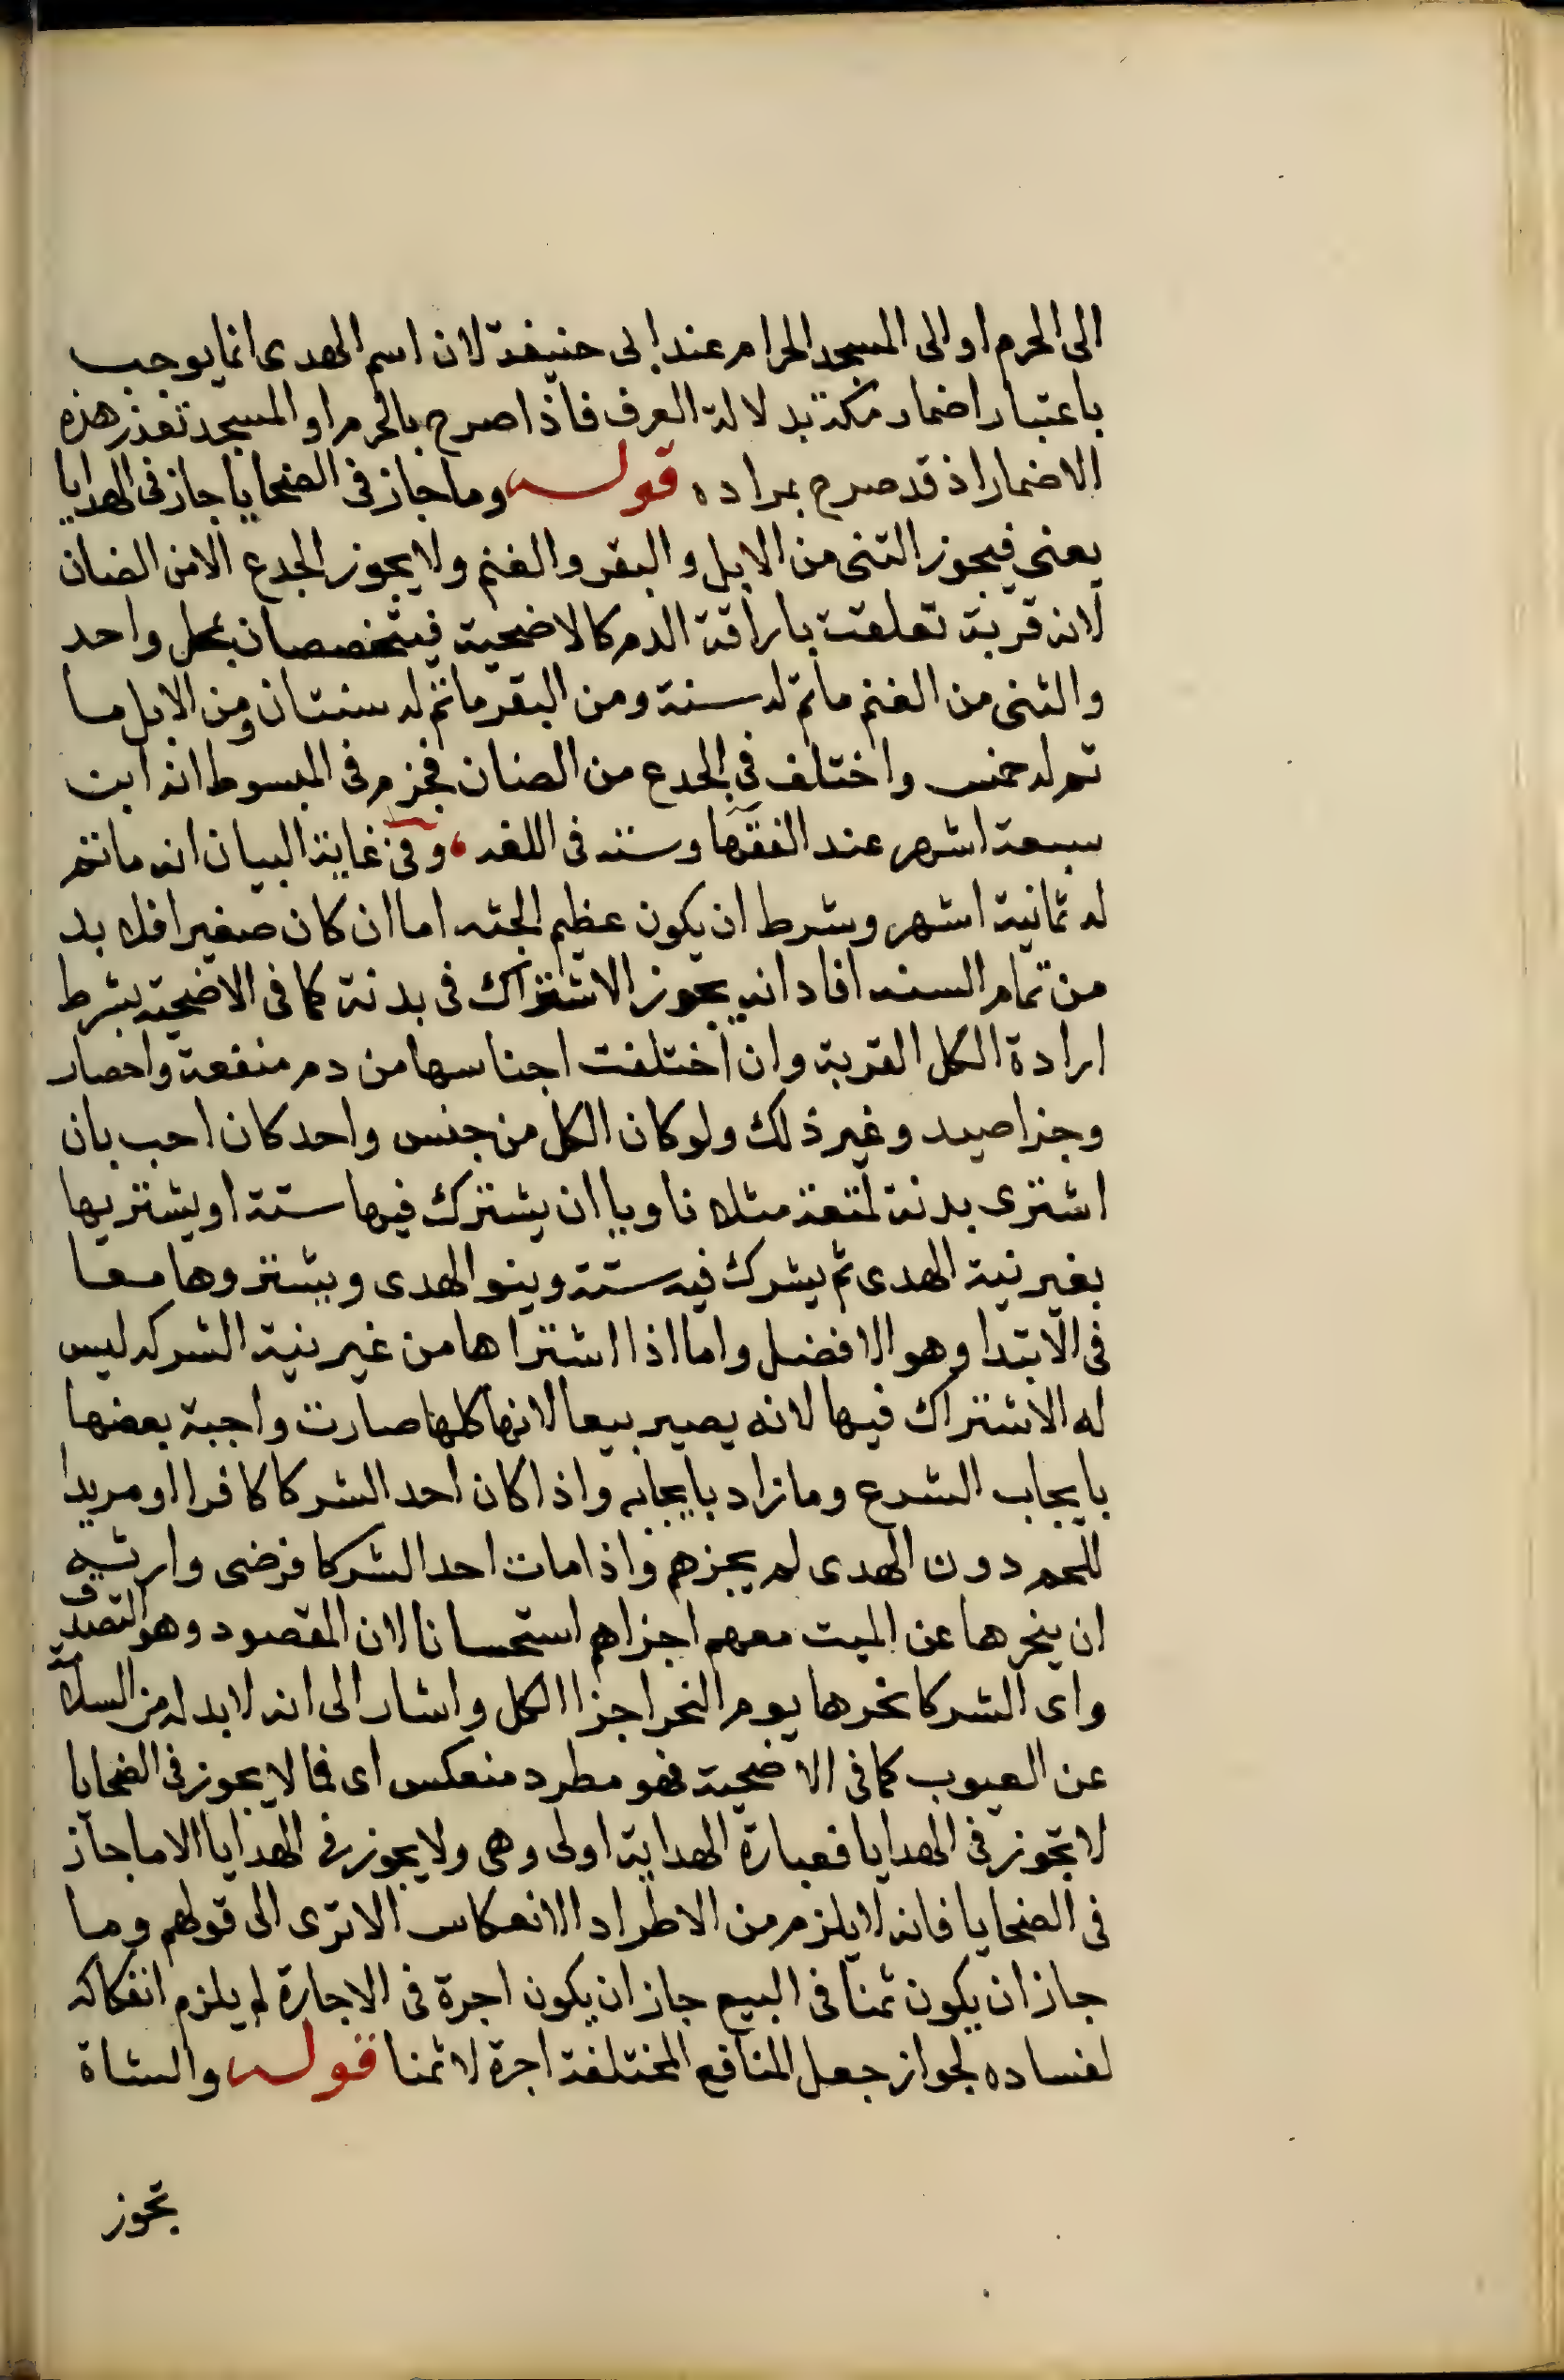 الى الحرم او الى المسجد الحرام عند ابى حنيفة لان اسم الهدى انما يوجب
باعتبار اضمار مكة بدلالة العرف فاذا صرح بالحرم او المسجد تعذر هذه
الاضمار اذ قد صرح بمراده قوله وما جاز فى الضحايا جاز فى الهدايا
يعنى فيجوز الثنى من الابل والبقر والغنم ولا يجوز الجدع الا من الضان
لانه قربة تعلقت باراقة الدم كالاضحية فيتخصصان بمحل واحد
والثنى من الغنم ما تم له سنة ومن البقر ما تم له سنتان ومن الابل ما
تم له خمس واختلف فى الجدع من الضان فجزم فى المبسوط انه ابن
سبعة اشهر عند الفقها وسنه فى اللغه وفى غاية البيان انه ما تم
له ثمانية اشهر وشرط ان يكون عظيم الجثه اما ان كان صغيرا فلا بد
من تمام السنه افاد انه يجوز الاشتراك فى بدنة كما فى الاضحية بشرط
ارادة الكل القربة وان اختلفت اجناسها من دم منفعة واحصار
وجزا صيد وغير ذلك ولو كان الكل من جنس واحد كان احب بان
اشترى بدنة لمتعة مثلا ناويا ان يشترك فيها ستة او يشتريها
بغير نية الهدى ثم يشرك فيه ستة وينو الهدى ويشتروها معا
فى الابتدا وهو الافضل واما اذا اشتراها من غير نية الشركه ليس
له الاشتراك فيها لانه يصير بيعا لانها كلها صارت واجبة بعضها
بايجاب الشرع وما زاد بايجابه واذا كان احد الشركا كافرا او مريدا
للحم دون الهدى لم يجزهم واذا مات احد الشركا فرضى وارثه
ان ينحرها عن الميت معهم اجزاهم استحسانا لان المقصود وهو التصدق
واى الشركا نحرها يوم النحر اجزا الكل واشار الى انه لا بد له من السلامة
عن العيوب كما فى الاضحية فهو مطرد منعكس اى فما لا يجوز فى الضحايا
لا تجوز فى الهدايا فعبارة الهداية اولى وهى ولا يجوز فى الهدايا الا ما جاز
فى الضحايا فانه لا يلزم من الاطراد الانعكاس الا ترى الى قولهم وما
جاز ان يكون ثمنا فى البيع جاز ان يكون اجرة فى الاجارة لم يلزم انفكاكه
لفساده لجواز جعل المنافع المختلفة اجرة لا ثمنا قوله والشاة
تجوز